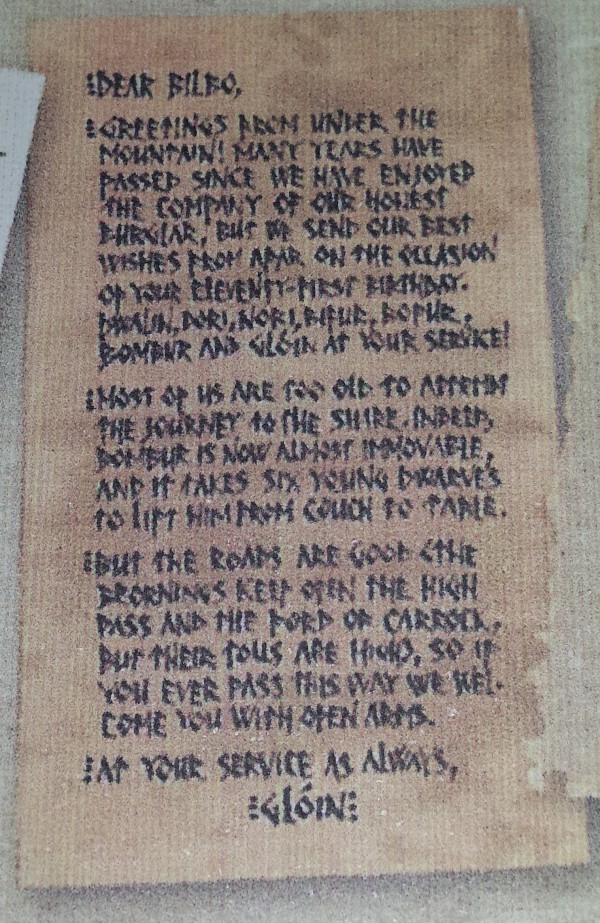 ⁝DEAR BILBO,
⁝GREETINGS FROM UNDER THE
MOUNTAIN! MANY YEARS HAVE
PASSED SINCE WE HAVE ENJOYED
THE COMPANY OF OUR HONEST
BURGLAR, BUT WE SEND OUR BEST
WISHES FROM AFAR ON THE OCCASION
OF YOUR ELEVENTY-FIRST BIRTHDAY.
DWALIN, DORI, NORI, BIFUR, BOFUR,
BOMBUR AND GLÓIN AT YOUR SERVICE!
⁝MOST OF US ARE TOO OLD TO ATTEMPT
THE JOURNEY TO THE SHIRE. INDEED,
BOMBUR IS NOW ALMOST IMMOVABLE,
AND IT TAKES SIX YOUNG DWARVES
TO LIFT HIM FROM COUCH TO TABLE.
⁝BUT THE ROADS ARE GOOD (THE
BEORNINGS KEEP OPEN THE HIGH
PASS AND THE FORD OF CARROCK,
BUT THEIR TOLLS ARE HIGH), SO IF
YOU EVER PASS THIS WAY WE WEL-
COME YOU WITH OPEN ARMS.
⁝AT YOUR SERVICE AS ALWAYS,
⁝GLÓIN⁝